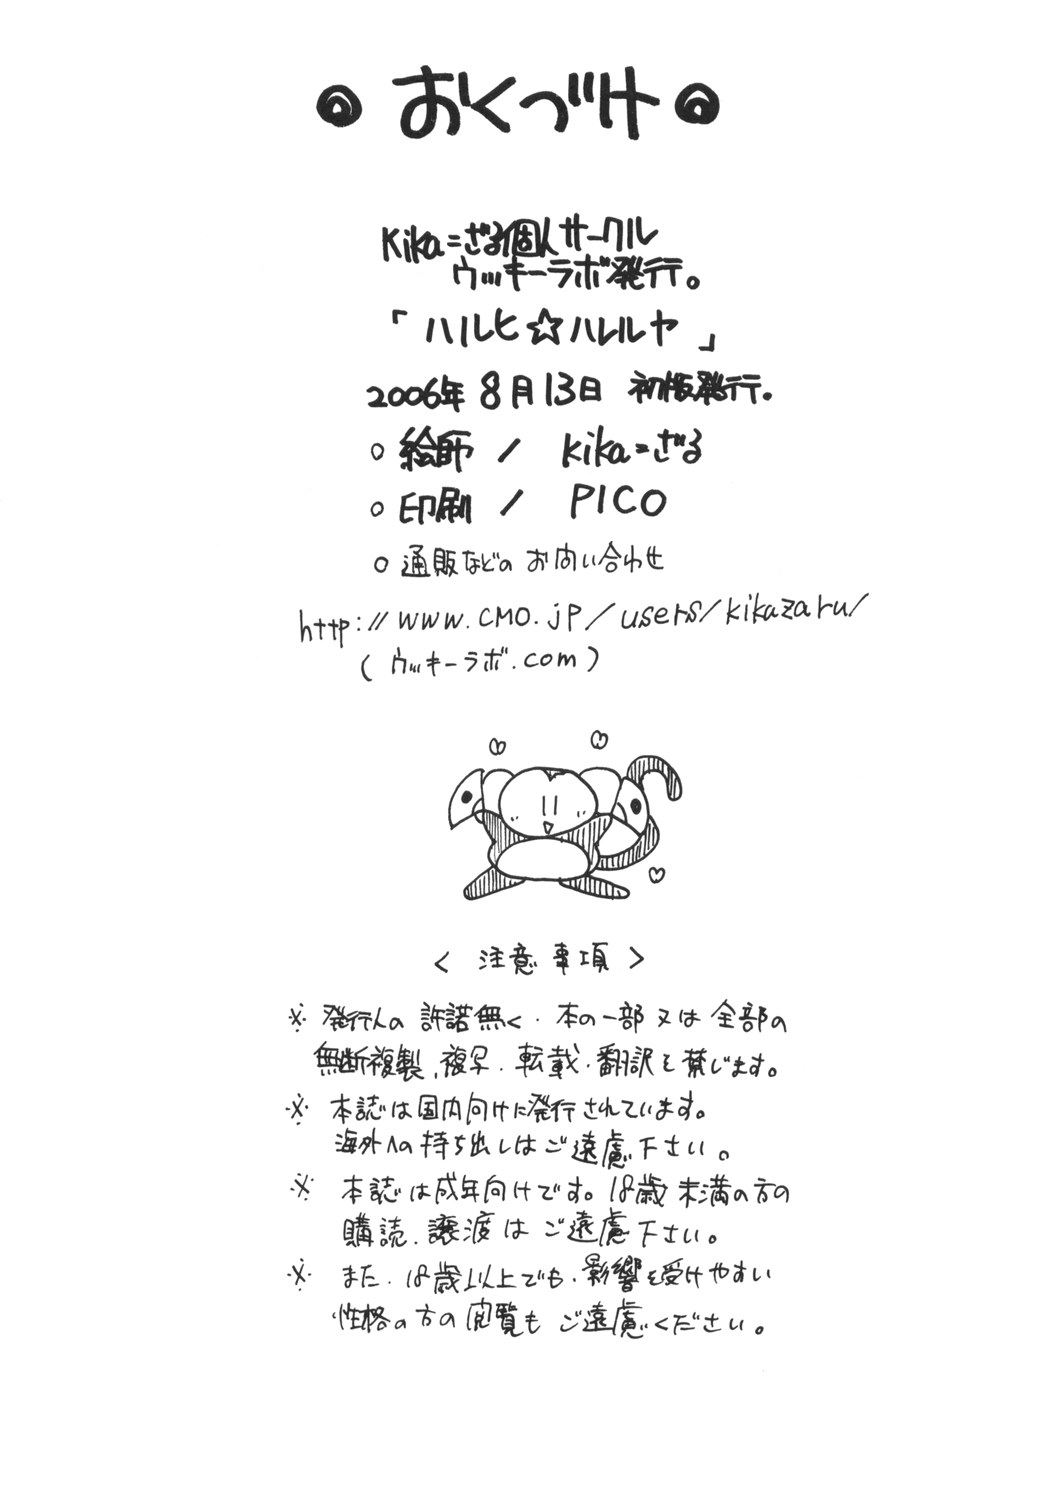 おくづけ
Kika=ざる個人サークル
ウッキーラボ発行。
「ハルヒ☆ハレルヤ」
2006年 8月13日 初版発行。
○ 絵師 / kika=ざる
○ 印刷 / PICO
○ 通販などの お問い合わせ
http://www.CMO.jp/users/kikazaru/
(ウッキーラボ.com)
< 注意事項 >
※ 発行人の 許諾無く、本の一部 又は 全部の
無断複製、複写、転載、翻訳を禁じます。
※ 本誌は国内向けに発行されています。
海外への持ち出しはご遠慮下さい。
※ 本誌は成年向けです。18歳 未満の方の
購読、譲渡はご遠慮下さい。
※ また、18歳以上でも、影響を受けやすい
性格の方の閲覧も ご遠慮ください。